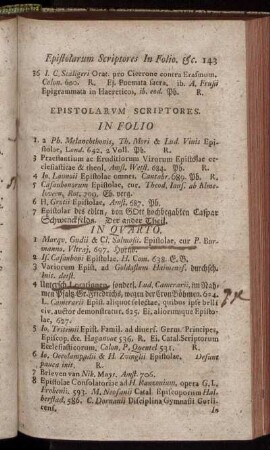 Epistolarum Scriptores In Folio, &c. 143
36 I. C. Scaligeri Orat. pro Cicerone contra Erasmum.
Colon. 600. R. Ej. Poemata sacra, ib. A. Frusii
Epigrammata in Haereticos, ib. eod. Pb. R.
EPISTOLARVM SCRIPTORES.
IN FOLIO
1. 2 Ph. Melanchthonis, Th. Mori & Lud. Vivis Epi-
stolae, Lond. 642. 2 Voll. Pb. R.
3 Praestantium ac Eruditorum Virorum Epistolae ec-
clesiasticae & theol. Amst. Wetst. 684. Pb. R.
4 Io. Launoii Epistolae omnes. Cantabr. 689. Pb. R.
5 Casaubonorum Epistolae, cur. Theod. Ians. ab Almelo-
veen, Rot. 709. Eb. verg.
6 H. Grotii Epistolae, Amst. 687. Pb.
7 Epistolar des edlen, von GOtt hochbegabten Caspar
Schwenckfelds. Der ander Theil.
IN QUARTO.
1 Marqv. Gudii & Cl. Salmasii Epistolae, cur P. Bur-
manno. Vltraj. 697.
2 Is. Casauboni Epistolae. H. Com. 638. E. B.
3 Variorum Epist. ad Goldastum durchsch.
4 Lud. Camerarii, im Nah-
men Pfaltz Gr. Friedrichs, wegen der Cron Böhmen. 624.
L. Camerarii Epist. aliquot selectae, quibus ipse belli
civ. auctor demonstratur. 625. Ej. aliorumque Episto-
lae, 627.
5 Io. Tritemii Epist. Famil. ad diuers. Germ. Principes,
Episcop. &c. Haganoae 536. R. Ei. Catal. Scriptorum
Ecclesiasticorum, Colon. P. Quentel 531. R.
6 Io. Oecolampadii & H. Zvinglii Epistolae. Desunt
pauca init. R.
7 Brieven van Nik. Amst. 706.
8 Epistolae Consolatoriae ad H. Rantzouium, opera G. L.
Frobenii. 593. M. Neofanii Catal. Episcoporum Hal-
berstad. 586. C. Dornauii Disciplina Gymnasii Gorli-
cens,